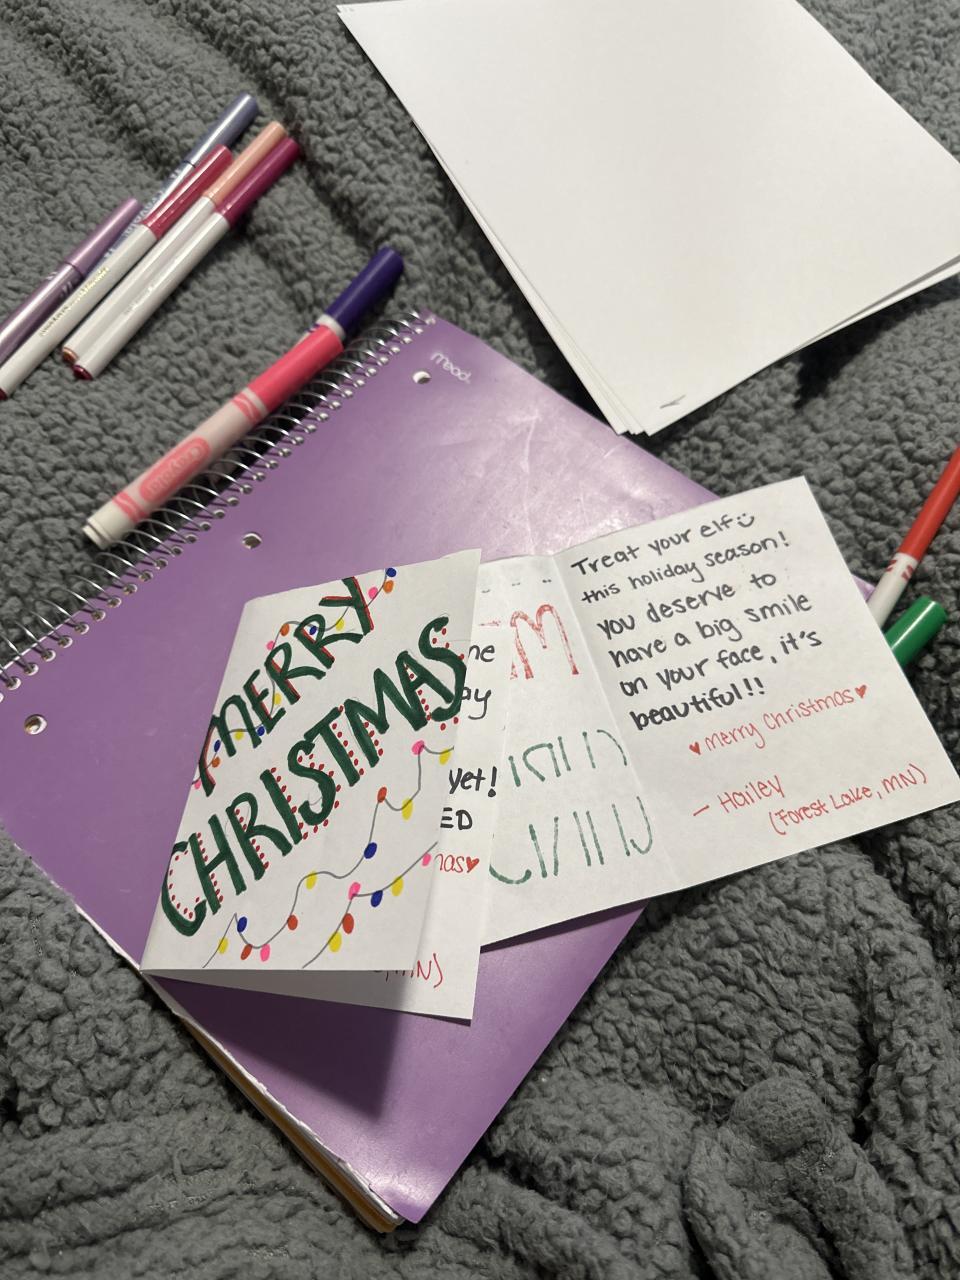 Mead
Crayola
MERRY
CHRISTMAS
yet!
Treat your elf
this holiday season!
you deserve to
have a big smile
on your face, it's
beautiful!!
♥ merry Christmas ♥
— Hailey
(Forest Lake, MN)